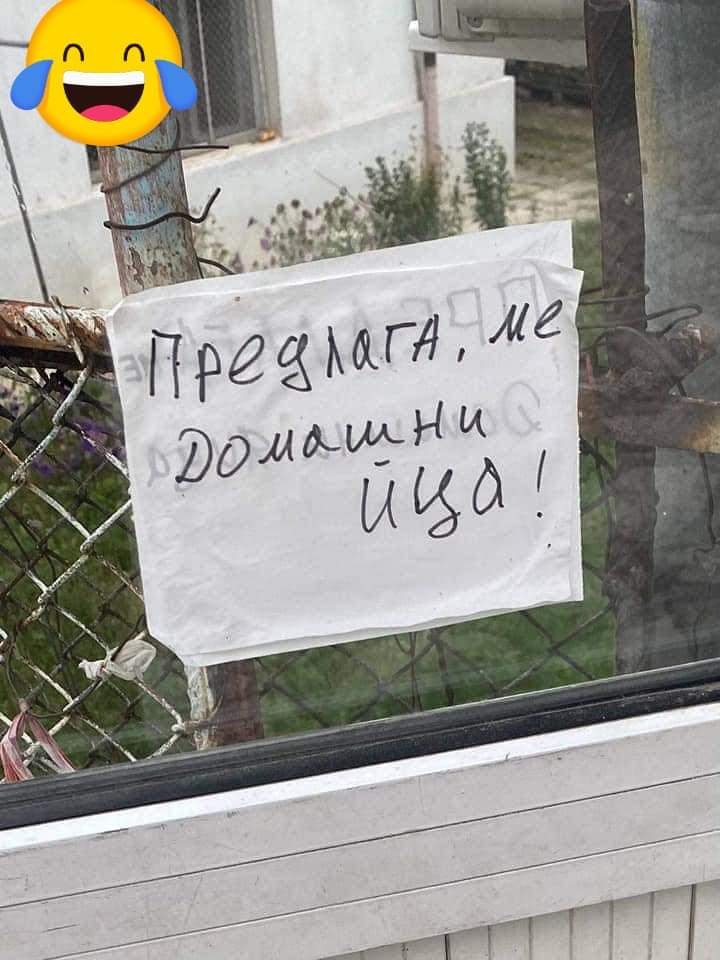 Предлага, ме
Домашни
йца!